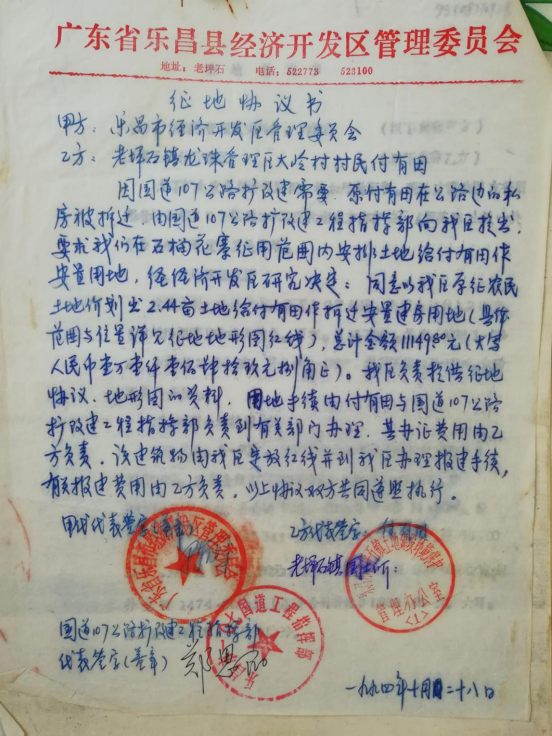 广东省乐昌县经济开发区管理委员会
地址：老坪石 电话：522773 523100
征地协议书
甲方：乐昌市经济开发区管理委员会
乙方：老坪石镇龙珠管理区大岭村村民付有田
因国道107公路扩改建需要，原付有田在公路边的私
房被拆迁，由国道107公路扩改建工程指挥部向我区提出，
要求我们在石榴花寨征用范围内安排土地给付有田作
安置用地，经经济开发区研究决定：同意以我区原征农民
土地价划出2.44亩土地给付有田作拆迁安置建房用地（具体
范围与位置详见征地地形图红线），总计金额11149.80元（大写
人民币壹万壹仟壹佰肆拾玖元捌角正）。我区负责提供征地
协议、地形图的资料，用地手续由付有田与国道107公路
扩改建工程指挥部负责到有关部门办理，其办证费用由乙
方负责。该建筑物由我区定放红线并到我区办理报建手续，
有关报建费用由乙方负责。以上协议双方共同遵照执行。
甲方代表签字（盖章） 乙方代表签字：付有田
广东省乐昌县经济开发区管理委员会
老坪石镇国土所：
国道107公路扩改建工程指挥部
代表签字（盖章）
国道工程指挥部
一九九四年十月二十八日